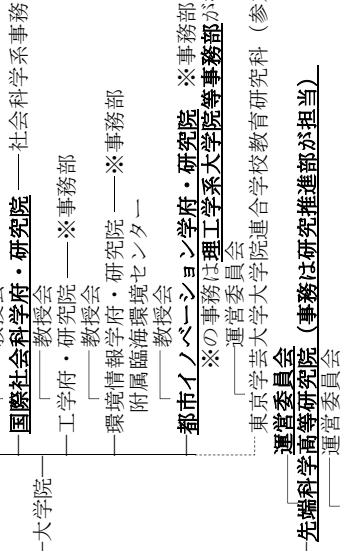 教授会
国際社会科学府・研究院 ―社会科学系事務
教授会
工学府・研究院 ―※事務部
教授会
環境情報学府・研究院 ―※事務部
附属臨海環境センター
教授会
都市イノベーション学府・研究院 ※事務部
※の事務は理工学系大学院等事務部が
運営委員会
東京学芸大学大学院連合学校教育研究科（参
大学院
運営委員会
先端科学高等研究院（事務は研究推進部が担当）
運営委員会